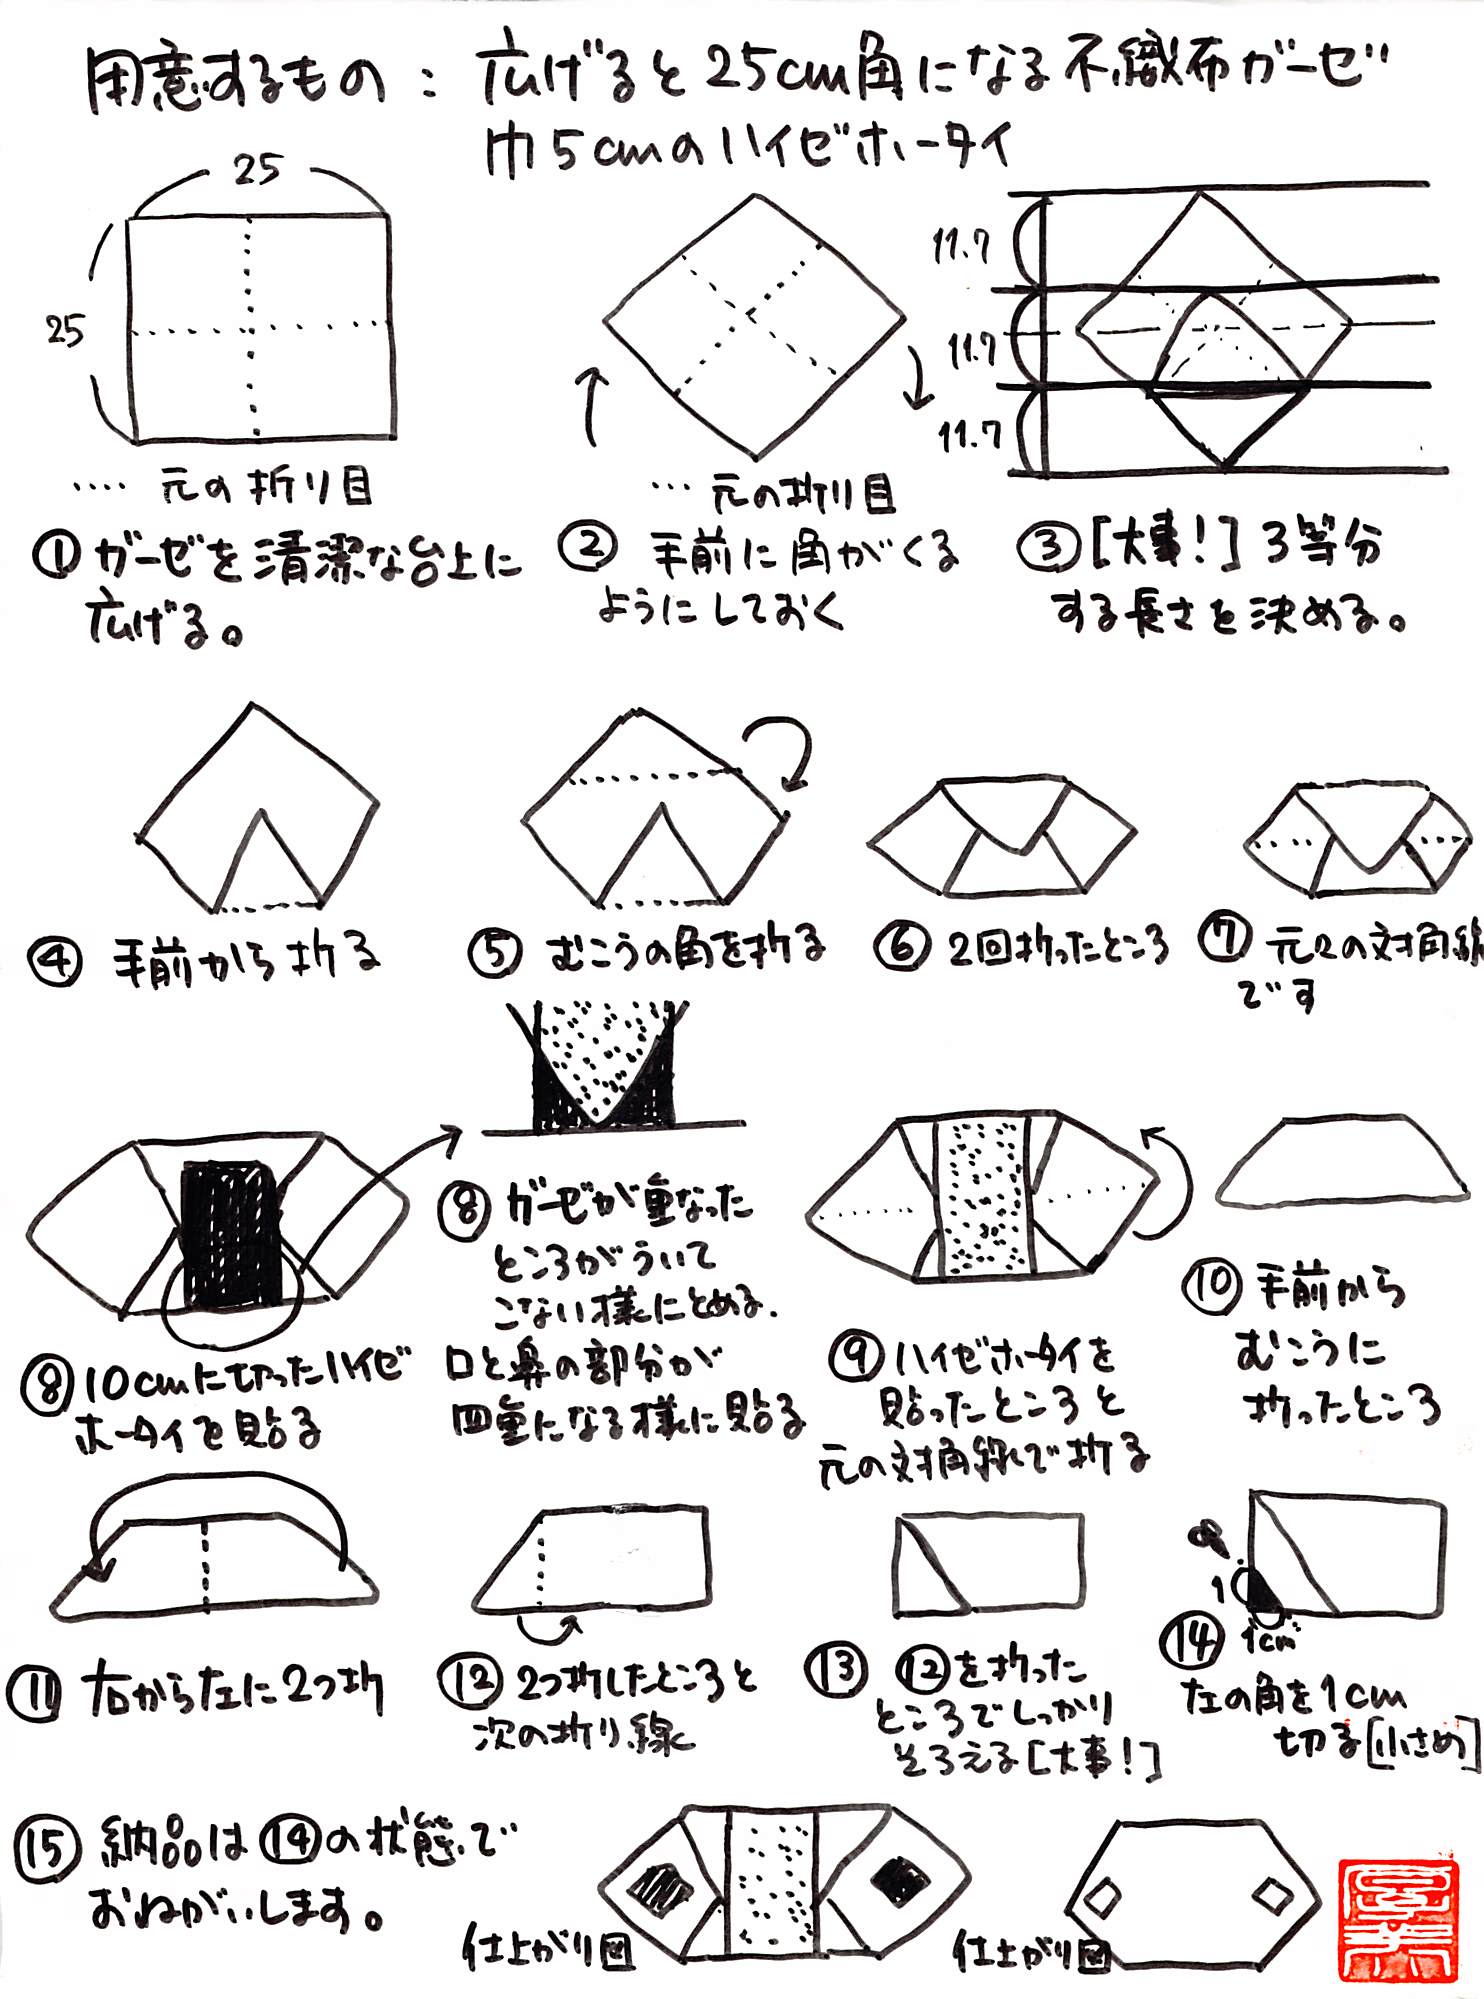 用意するもの：広げると25cm角になる不織布ガーゼ
巾5cmのハイゼホータイ
25
25
‥‥元の折り目
①ガーゼを清潔な台上に
広げる。
…元の折り目
②手前に角がくる
ようにしておく
11.7
11.7
11.7
③[大事！]3等分
する長さを決める。
④手前から折る
⑤むこうの角を折る
⑥2回折ったところ
⑦元々の対角線
です
⑧10cmに切ったハイゼ
ホータイを貼る
⑧ガーゼが重なった
ところがういて
こない様にとめる.
口と鼻の部分が
四重になる様に貼る
⑨ハイゼホータイを
貼ったところと
元の対角線で折る
⑩手前から
むこうに
折ったところ
⑪右から左に2つ折
⑫2つ折したところと
次の折り線
⑬⑫を折った
ところでしっかり
そろえる[大事！]
1
1cm
⑭左の角を1cm
切る[小さめ]
⑮納品は⑭の状態で
おねがいします。
仕上がり図
仕上がり図